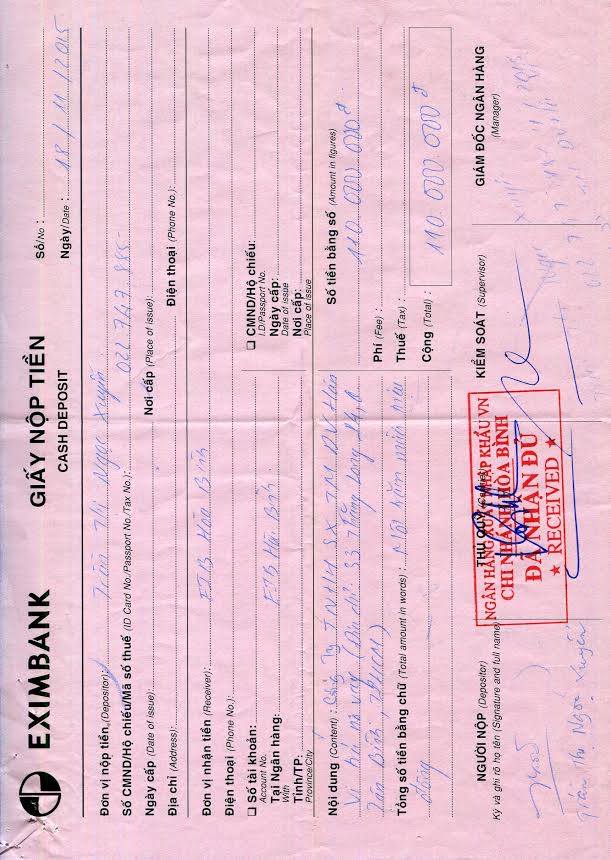 EXIMBANK
GIẤY NỘP TIỀN
CASH DEPOSIT
Số/No :
Ngày/Date : 18/11/2015
Đơn vị nộp tiền (Depositor): Trần Thị Ngọc Xuyến
Số CMND/Hộ chiếu/Mã số thuế (ID Card No./Passport No./Tax No.): 022 747 885
Ngày cấp (Date of issue): Nơi cấp (Place of issue):
Địa chỉ (Address): Điện thoại (Phone No.):
Đơn vị nhận tiền (Receiver): EIB Hòa Bình
Điện thoại (Phone No.):
Số tài khoản:
Account No.
Tại Ngân hàng: EIB Hòa Bình
With
Tỉnh/TP:
Province/City
CMND/Hộ chiếu:
I.D/Passport No.
Ngày cấp:
Date of issue
Nơi cấp:
Place of issue
Nội dung (Content) : Công Ty TNHH SX TM DV Hàn
Vi trả nợ vay (Địa chỉ: 33 Thăng Long P4, Q
Tân Bình, TPHCM)
Tổng số tiền bằng chữ (Total amount in words) : Một trăm mười triệu
đồng
Số tiền bằng số (Amount in figures)
110 000 000 đ
Phí (Fee) :
Thuế (Tax) :
Cộng (Total) : 110 000 000 đ
NGƯỜI NỘP (Depositor)
Ký và ghi rõ họ tên (Signature and full name)
Trần Thị Ngọc Xuyến
THỦ QUỸ
KIỂM SOÁT (Supervisor)
GIÁM ĐỐC NGÂN HÀNG
(Manager)
NGÂN HÀNG XUẤT NHẬP KHẨU VN
CHI NHÁNH HÒA BÌNH
ĐÃ NHẬN ĐỦ
★ RECEIVED ★